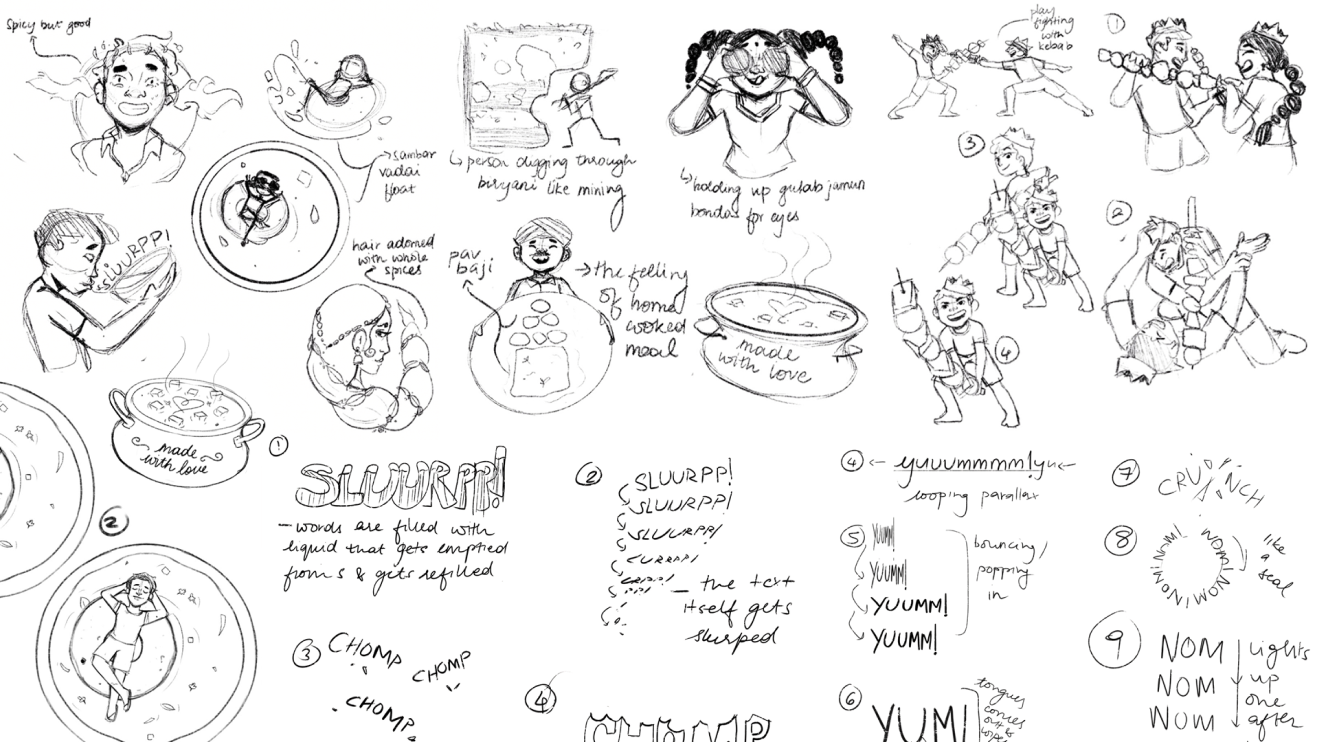 Spicy but good
sambar
vadai
float
person digging through
biryani like mining
holding up gulab jamun
bondas for eyes
play
fighting
with
kebab
1
3
2
4
SLUURPP!
hair adorned
with whole
spices
pav
baji
the felling
of home
cooked
meal
made
with love
made
with love
2
1
SLUURPP!
– words are filled with
liquid that gets emptied
from S & gets refilled
2
SLUURPP!
SLUURPP!
SLUURPP!
– the text
itself gets
slurped
3
CHOMP
CHOMP
CHOMP
4
CHOMP
4
yuuummmm!yu
looping parallax
5
YUUMM!
YUUMM!
YUUMM!
YUUMM!
bouncing/
popping
in
6
YUM!
tongues
comes
out
7
CRUNCH
8
NOM!NOM!NOM!NOM!
like
a
seal
9
NOM
NOM
NOM
lights
up
one
after